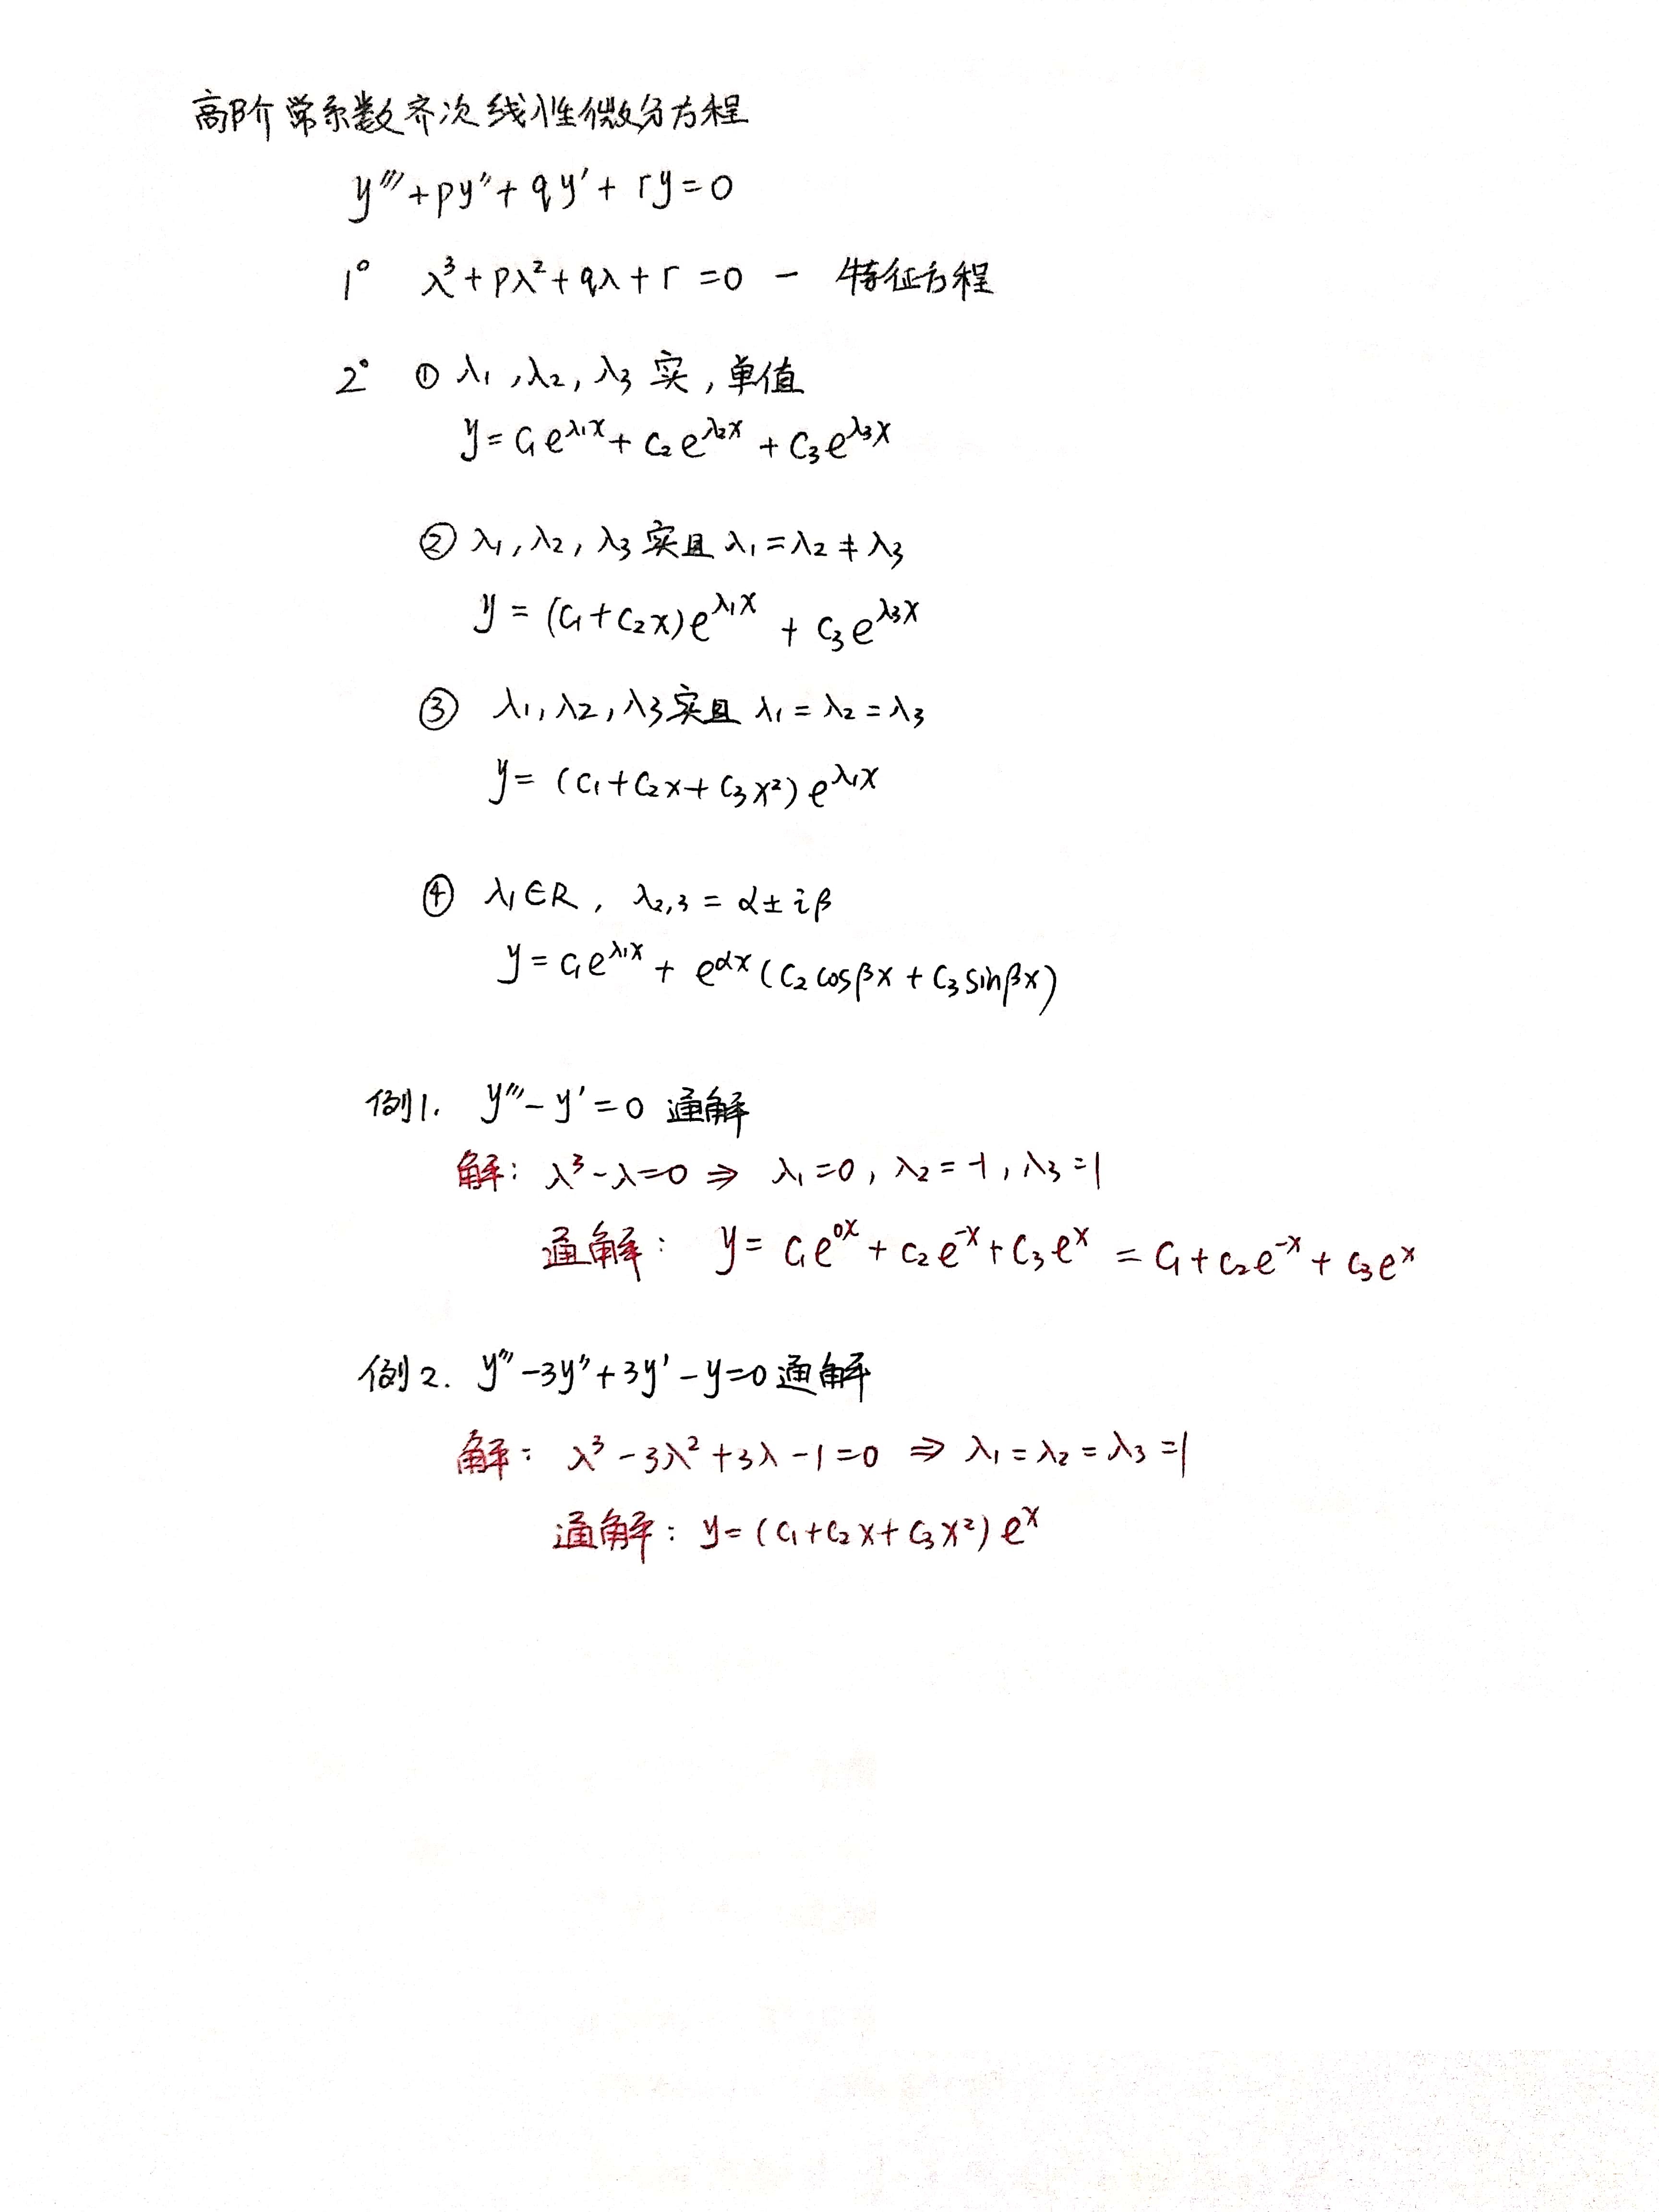 高阶常系数齐次线性微分方程
y'''+py''+qy'+ry=0
1° λ³+pλ²+qλ+r=0 - 特征方程
2° ① λ₁,λ₂,λ₃实,单值
y=C₁e^{λ₁x}+C₂e^{λ₂x}+C₃e^{λ₃x}
② λ₁,λ₂,λ₃实且λ₁=λ₂≠λ₃
y=(C₁+C₂x)e^{λ₁x}+C₃e^{λ₃x}
③ λ₁,λ₂,λ₃实且λ₁=λ₂=λ₃
y=(C₁+C₂x+C₃x²)e^{λ₁x}
④ λ₁∈R, λ₂,₃=α±iβ
y=C₁e^{λ₁x}+e^{αx}(C₂cosβx+C₃sinβx)
例1. y'''-y'=0 通解
解: λ³-λ=0 ⇒ λ₁=0, λ₂=-1, λ₃=1
通解: y=C₁e^{0x}+C₂e^{-x}+C₃e^{x}=C₁+C₂e^{-x}+C₃e^{x}
例2. y'''-3y''+3y'-y=0通解
解: λ³-3λ²+3λ-1=0 ⇒ λ₁=λ₂=λ₃=1
通解: y=(C₁+C₂x+C₃x²)e^{x}